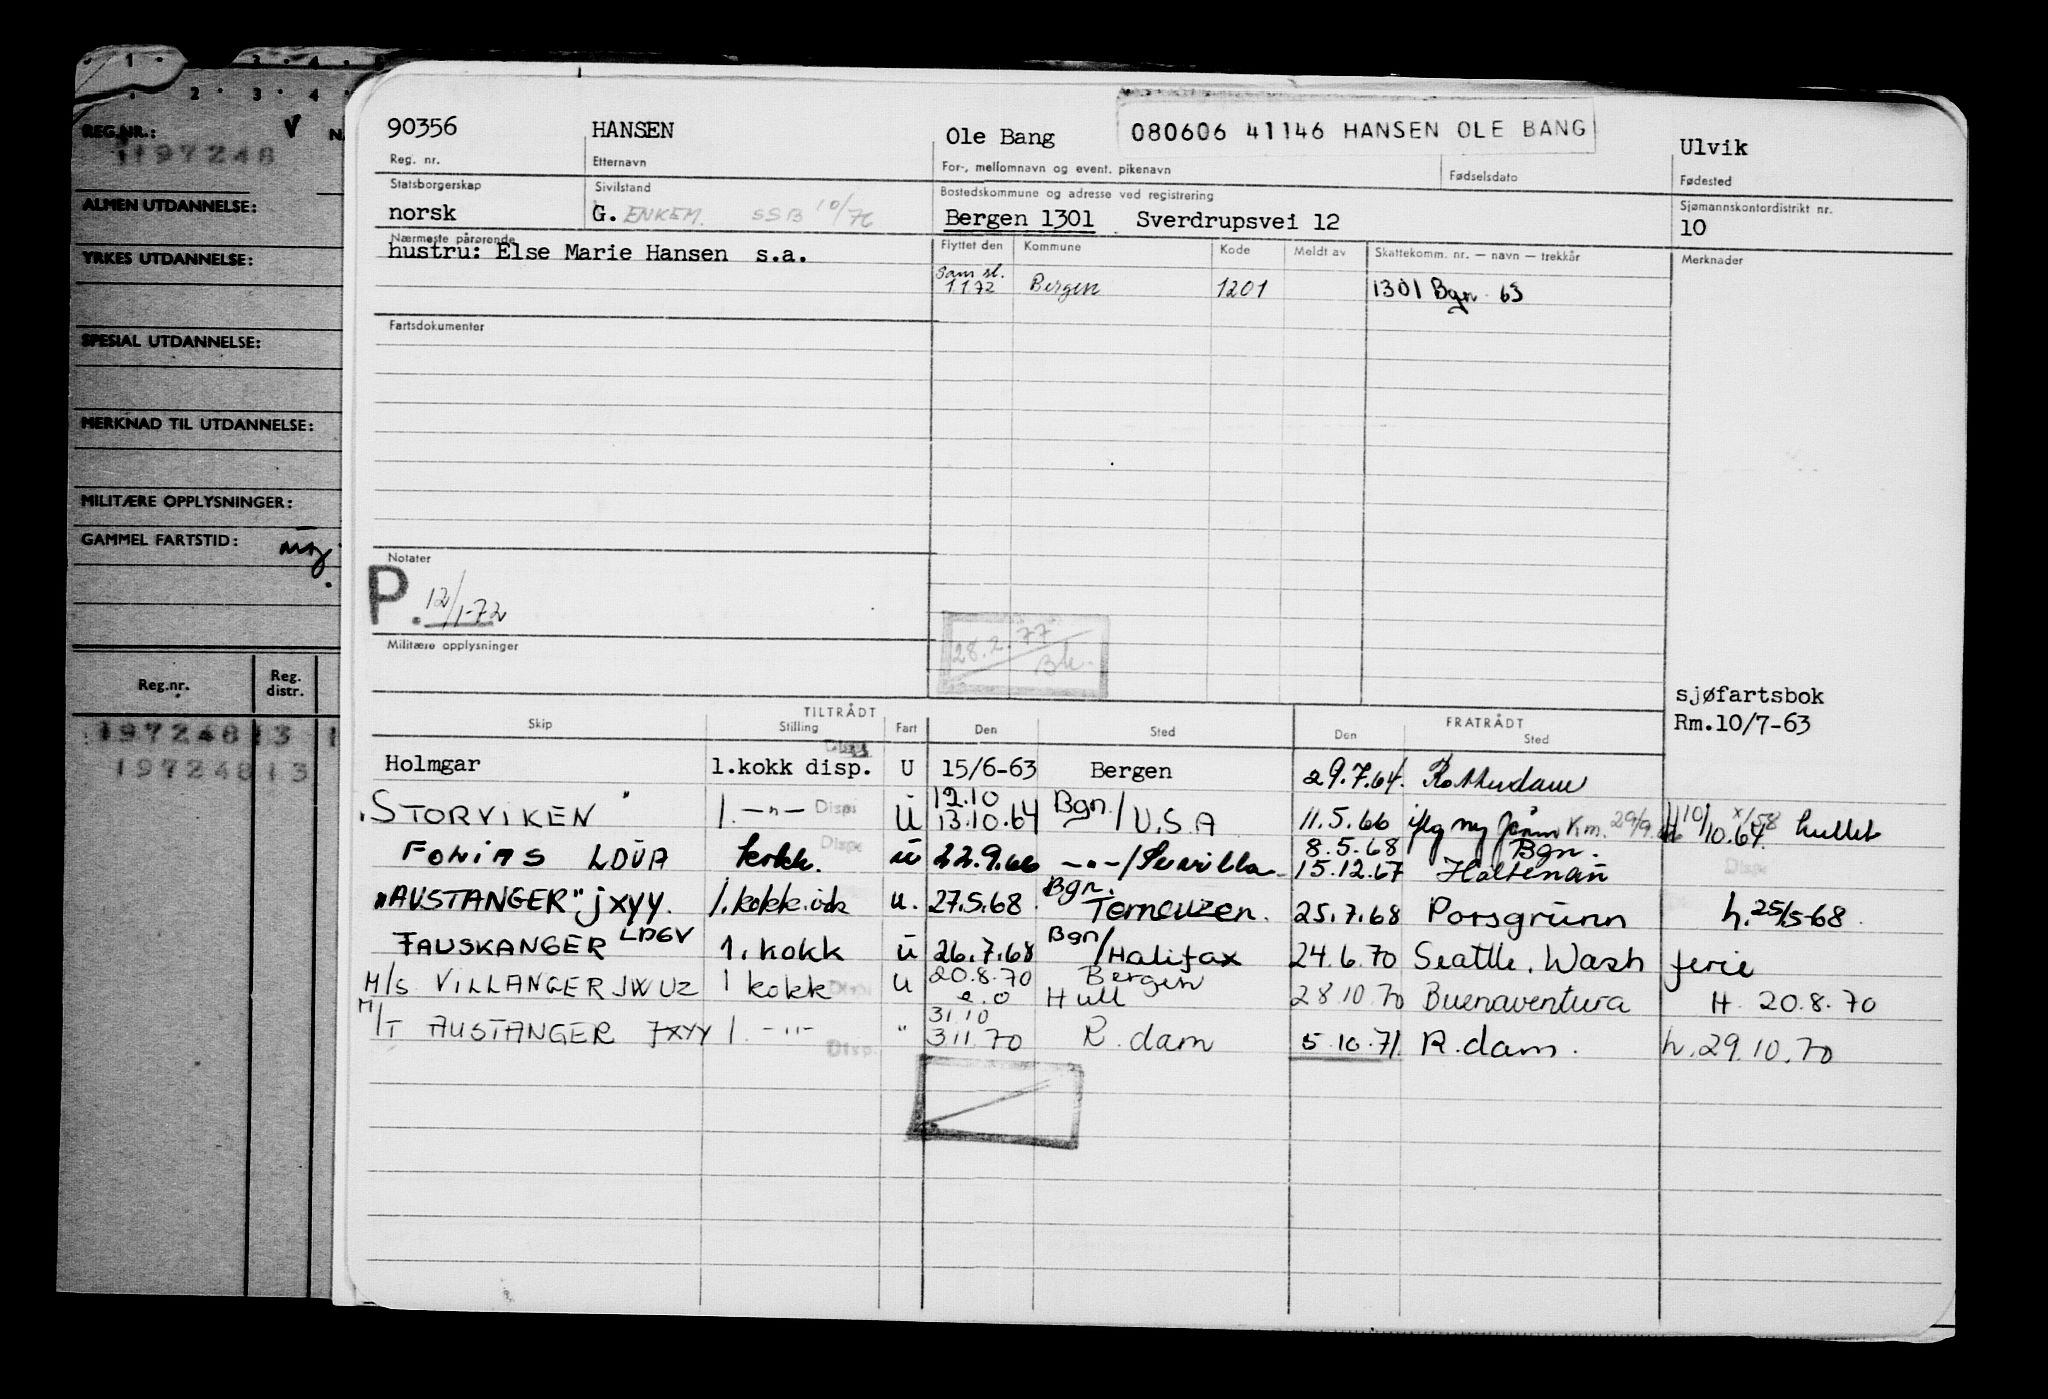 1 . 3 . 4 .
. 2 . 3 . 4
REG.NR.: V
1197248
ALMEN UTDANNELSE:
YRKES UTDANNELSE:
SPESIAL UTDANNELSE:
MERKNAD TIL UTDANNELSE:
MILITÆRE OPPLYSNINGER:
GAMMEL FARTSTID:
Reg.nr. Reg. distr.
197248 13 1
197248 13
90356 HANSEN Ole Bang 080606 41146 HANSEN OLE BANG Ulvik
Reg. nr. Etternavn For-, mellomnavn og event. pikenavn Fødselsdato Fødested
Statsborgerskap Sivilstand Bostedskommune og adresse ved registrering Sjømannskontordistrikt nr.
norsk G. ENKEM. SSB 10/76 Bergen 1301 Sverdrupsvei 12 10
Nærmeste pårørende Flyttet den Kommune Kode Meldt av Skattekomm. nr. — navn — trekkår Merknader
hustru: Else Marie Hansen s.a.
Sam sl.
1172 Bergen 1201 1301 Bgn 63
Fartsdokumenter
Notater
P. 12/1-72
28.2.77
Militære opplysninger
sjøfartsbok
Rm.10/7-63
TILTRÅDT FRATRÅDT
Skip Stilling Fart Den Sted Den Sted
Holmgar 1.kokk disp. U 15/6-63 Bergen 29.7.64 Rotterdam
"STORVIKEN" 1. —"— Disp U 12.10 13.10.64 Bgn/U.S.A 11.5.66 iflg ny Km. 29/9 10/10.64 x/58 hullet
LDUA kokk. Disp u 22.9.66 —"—/ 8.5.68 Bgn.
15.12.67 Holtenau Disp
"AUSTANGER" jxyy. 1.kokk u. 27.5.68 Bgn. Terneuzen. 25.7.68 Porsgrunn h. 25/5-68
FAUSKANGER LDGV 1. kokk u 26.7.68 Bgn/Halifax 24.6.70 Seattle. Wash ferie
M/S VILLANGER JWUZ 1 kokk Disp U 20.8.70 Bergen
Hull 28.10.70 Buenaventura H. 20.8.70
M/T AUSTANGER JXYY 1. —"— Disp. " 31.10 3.11.70 R.dam 5.10.71. R.dam. h. 29.10.70